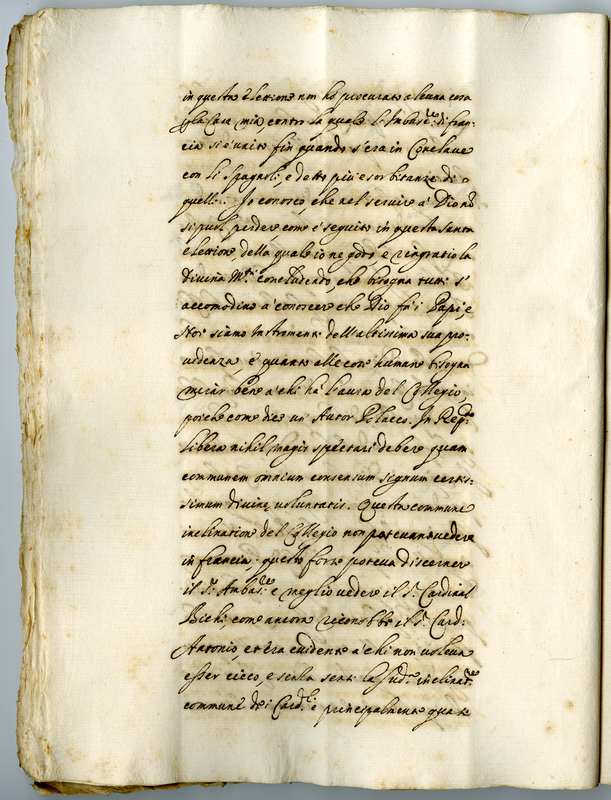 in questa elettione non hò procurato alcuna cosa
p la Casa mia, contro la quale l'Imbas.re di fran:
cia si è unito fin quando s'era in Conclave
con li Spagnoli, e detto più esorbitanze di
quelli. Io conosco, che nel servire a Dio nō
si può perdere come è seguito in questa santa
elettione, della quale io ne godo e ringratio la
Divina M.tà concludendo, che bisogna tutti s'
accomodino a conoscere che Dio fà i Papi, e
Noi siamo Instromenti dell'altissima sua pro:
videnza, e quanto alle cose humane bisogna
mirar bene a chi hà l'aura del Collegio,
poiche come dice un Autor Polacco. In Rep.ca
libera nihil magis spectari debere quam
communem omnium consensum signum certis:
simum divinę voluntatis. Questa commune
inclination del Collegio non potevano vedere
in francia, questo forse poteva discernere
il S.r Ambas.re e meglio vedere il S.r Cardinal
Bichi come ancora riconobbe il S.r Card:
Antonio, et era evidente a chi non voleva
esser cieco, e senza senti la Sud.a inclinat.ne
commune de i Card.li e principalmente quasi